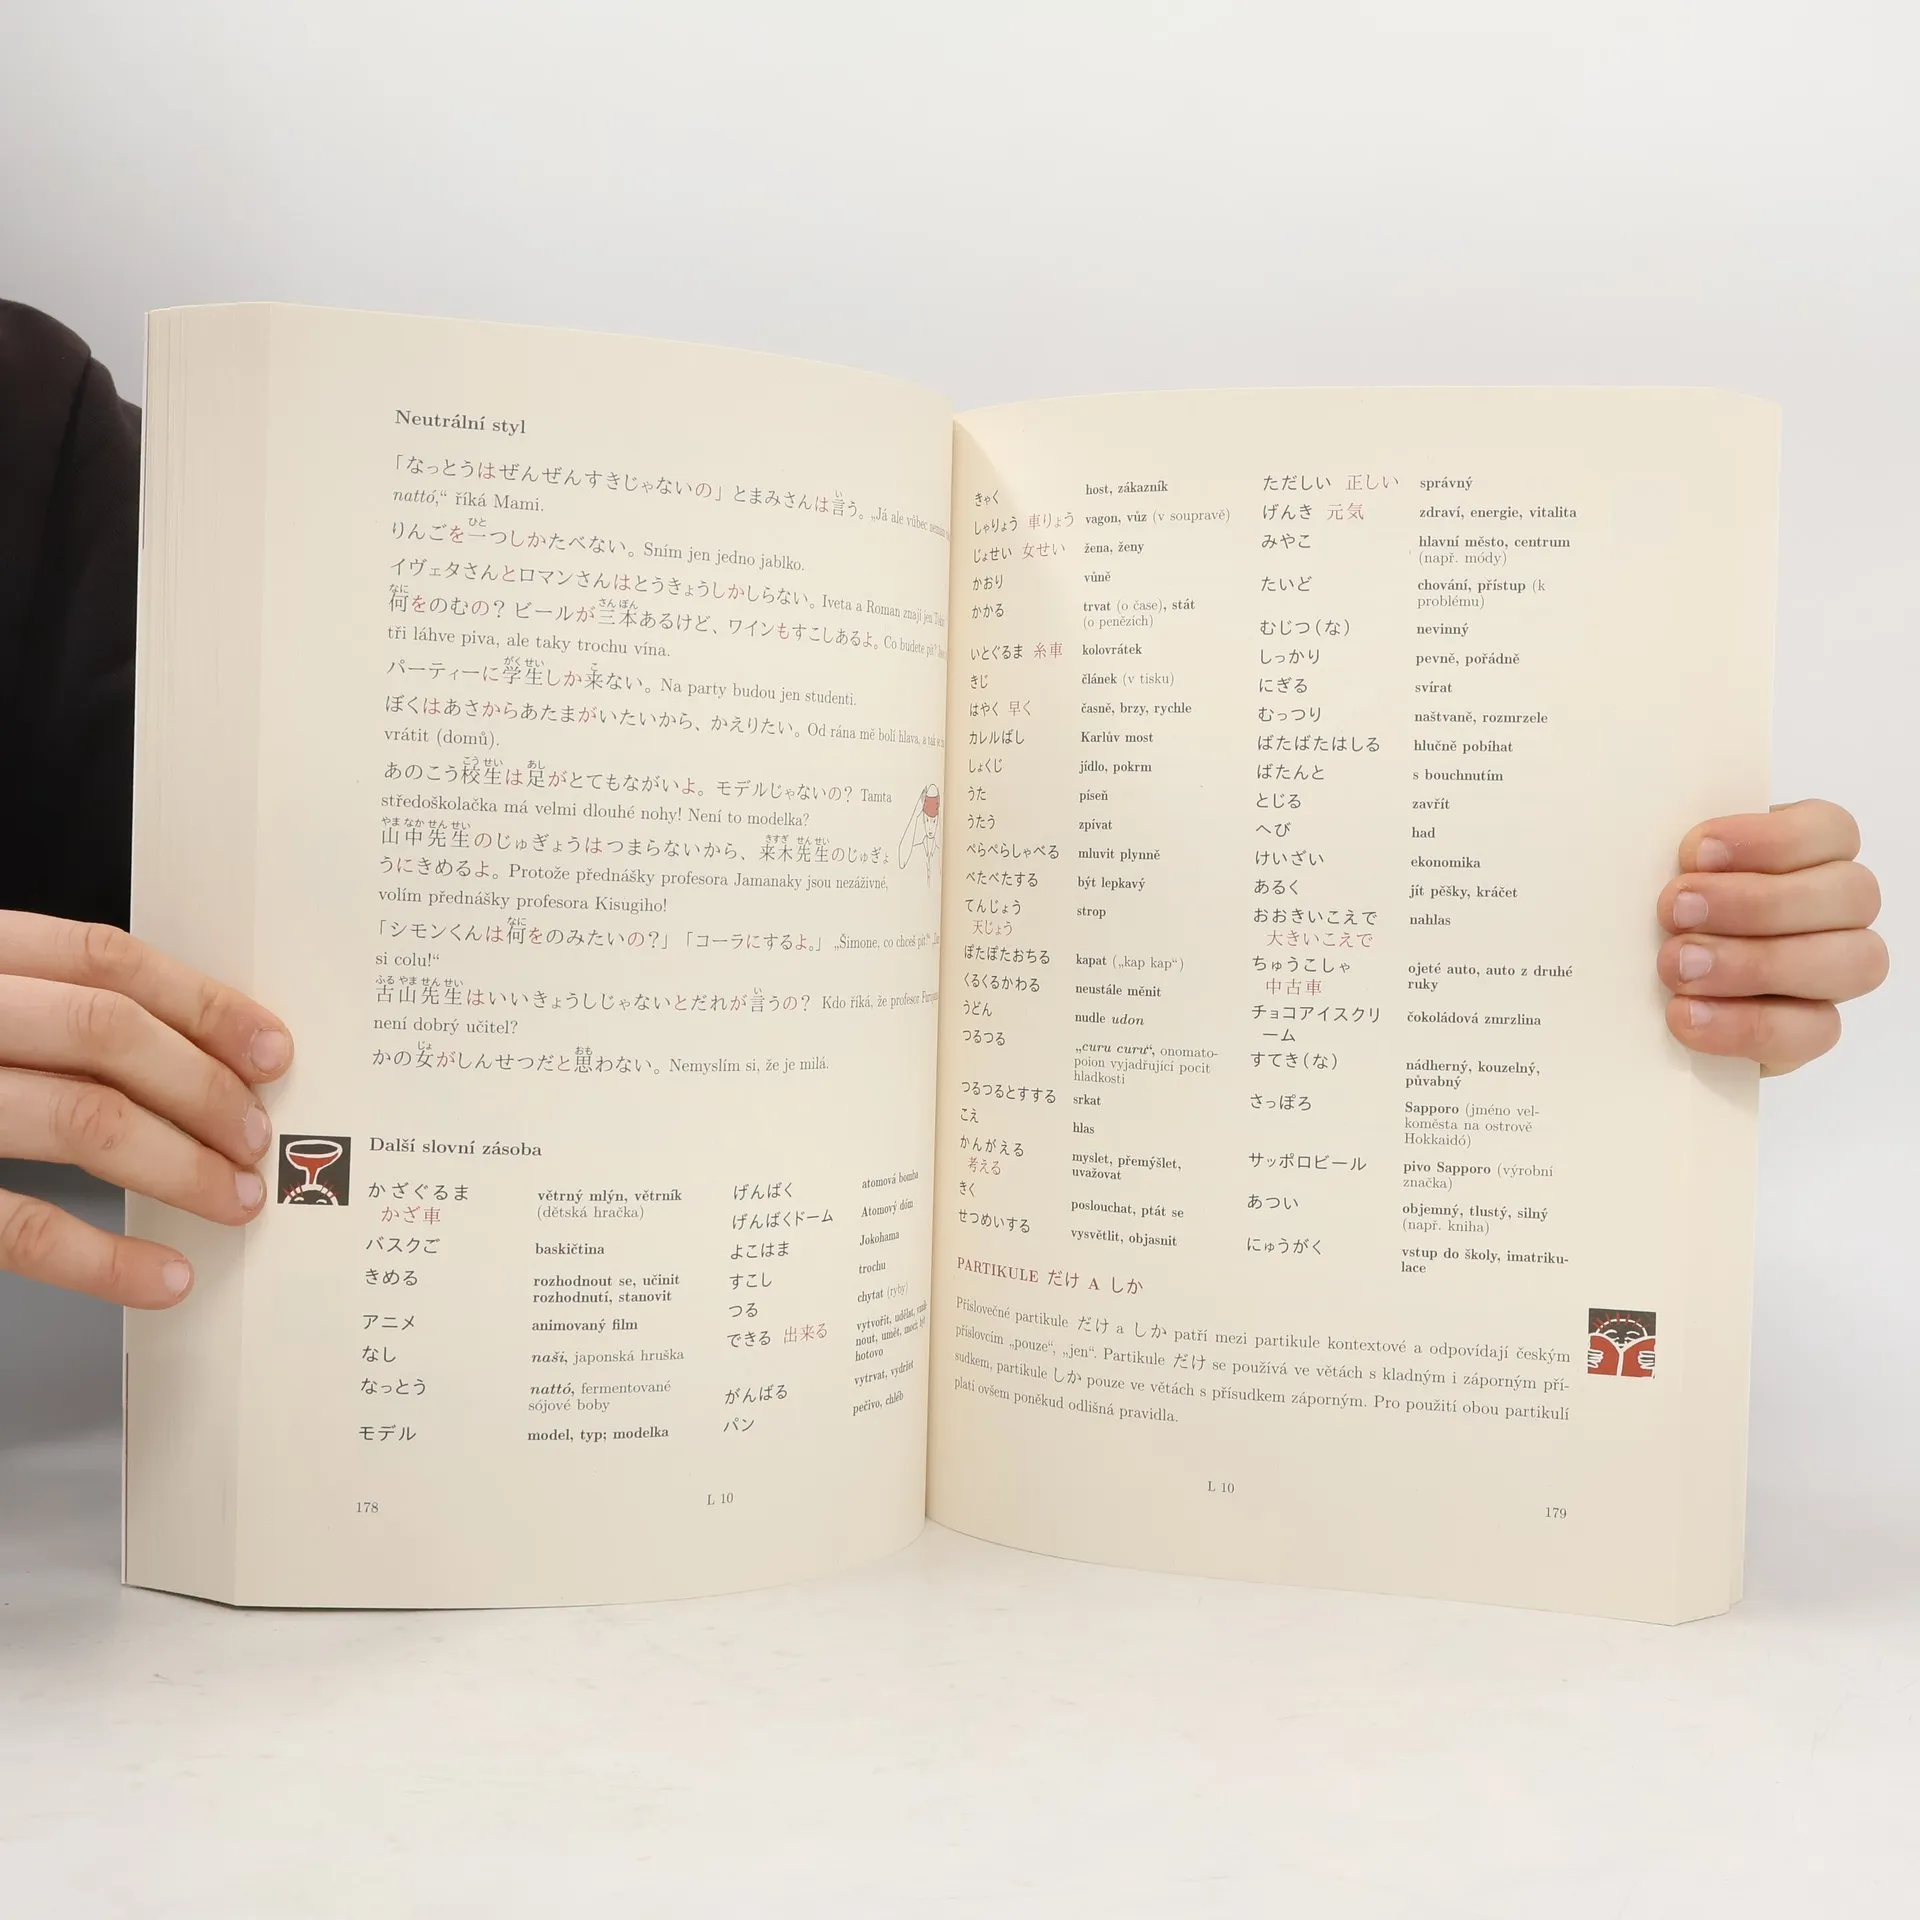 Neutrální styl
「なっとうはぜんぜんすきじゃないの」とまみさんは言う。„Já ale vůbec nemám
nattó,“ říká Mami.
りんごを一つしかたべない。Sním jen jedno jablko.
イヴェタさんとロマンさんはとうきょうしかしらない。Iveta a Roman znají jen
何をのむの？ビールが三本あるけど、ワインもすこしあるよ。Co budete pít?
tři láhve piva, ale taky trochu vína.
パーティーに学生しか来ない。Na party budou jen studenti.
ぼくはあさからあたまがいたいから、かえりたい。Od rána mě bolí hlava, a tak
vrátit (domů).
あのこう校生は足がとてもながいよ。モデルじゃないの？Tamta
středoškolačka má velmi dlouhé nohy! Není to modelka?
山中先生のじゅぎょうはつまらないから、来木先生のじゅぎょ
うにきめるよ。Protože přednášky profesora Jamanaky jsou nezáživné,
volím přednášky profesora Kisugiho!
「シモンくんは何をのみたいの？」「コーラにするよ。」„Šimone, co chceš pít?“
si colu!“
古山先生はいいきょうしじゃないとだれが言うの？Kdo říká, že profesor
není dobrý učitel?
かの女がしんせつだと思わない。Nemyslím si, že je milá.
Další slovní zásoba
かざぐるま větrný mlýn, větrník
かざ車 (dětská hračka)
バスクご baskičtina
きめる rozhodnout se, učinit
rozhodnutí, stanovit
アニメ animovaný film
なし naši, japonská hruška
なっとう nattó, fermentované
sójové boby
モデル model, typ; modelka
げんばく atomová bomba
げんばくドーム Atomový dóm
よこはま Jokohama
すこし trochu
つる chytat (ryby)
できる 出来る vytvořit, udělat, vznik-
nout, umět, moci, být
hotovo
がんばる vytrvat, vydržet
パン pečivo, chléb
178
L 10
きゃく host, zákazník
しゃりょう 車りょう vagon, vůz (v soupravě)
じょせい 女せい žena, ženy
かおり vůně
かかる trvat (o čase), stát
(o penězích)
いとぐるま 糸車 kolovrátek
きじ článek (v tisku)
はやく 早く časně, brzy, rychle
カレルばし Karlův most
しょくじ jídlo, pokrm
うた píseň
うたう zpívat
ぺらぺらしゃべる mluvit plynně
べたべたする být lepkavý
てんじょう strop
天じょう
ぽたぽたおちる kapat („kap kap“)
くるくるかわる neustále měnit
うどん nudle udon
つるつる „curu curu“, onomato-
poion vyjadřující pocit
hladkosti
つるつるとすする srkat
こえ hlas
かんがえる myslet, přemýšlet,
考える uvažovat
きく poslouchat, ptát se
せつめいする vysvětlit, objasnit
ただしい 正しい správný
げんき 元気 zdraví, energie, vitalita
みやこ hlavní město, centrum
(např. módy)
たいど chování, přístup (k
problému)
むじつ(な) nevinný
しっかり pevně, pořádně
にぎる svírat
むっつり naštvaně, rozmrzele
ばたばたはしる hlučně pobíhat
ばたんと s bouchnutím
とじる zavřít
へび had
けいざい ekonomika
あるく jít pěšky, kráčet
おおきいこえで nahlas
大きいこえで
ちゅうこしゃ ojeté auto, auto z druhé
中古車 ruky
チョコアイスクリ čokoládová zmrzlina
ーム
すてき(な) nádherný, kouzelný,
půvabný
さっぽろ Sapporo (jméno vel-
koměsta na ostrově
Hokkaidó)
サッポロビール pivo Sapporo (výrobní
značka)
あつい objemný, tlustý, silný
(např. kniha)
にゅうがく vstup do školy, imatriku-
lace
PARTIKULE だけ A しか
Příslovečné partikule だけ a しか patří mezi partikule kontextové a odpovídají českým
příslovcím „pouze“, „jen“. Partikule だけ se používá ve větách s kladným i záporným pří-
sudkem, partikule しか pouze ve větách s přísudkem záporným. Pro použití obou partikulí
platí ovšem poněkud odlišná pravidla.
L 10
179